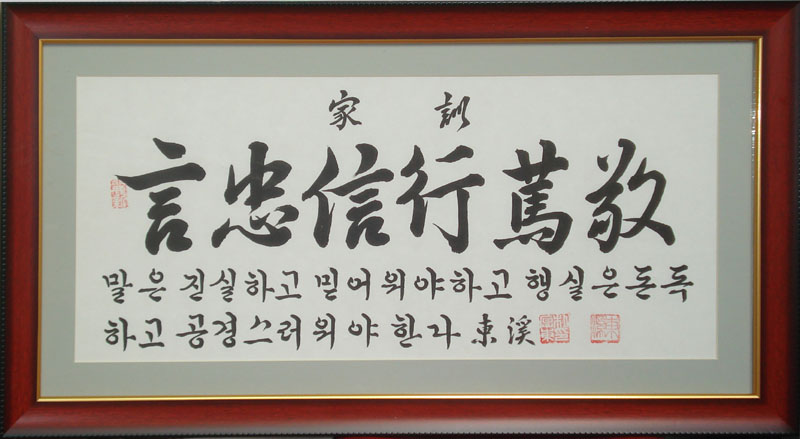 家訓
言忠信行篤敬
말은 진실하고 믿어워야하고 행실은돈독
하고 공경스러워야 한다 東溪